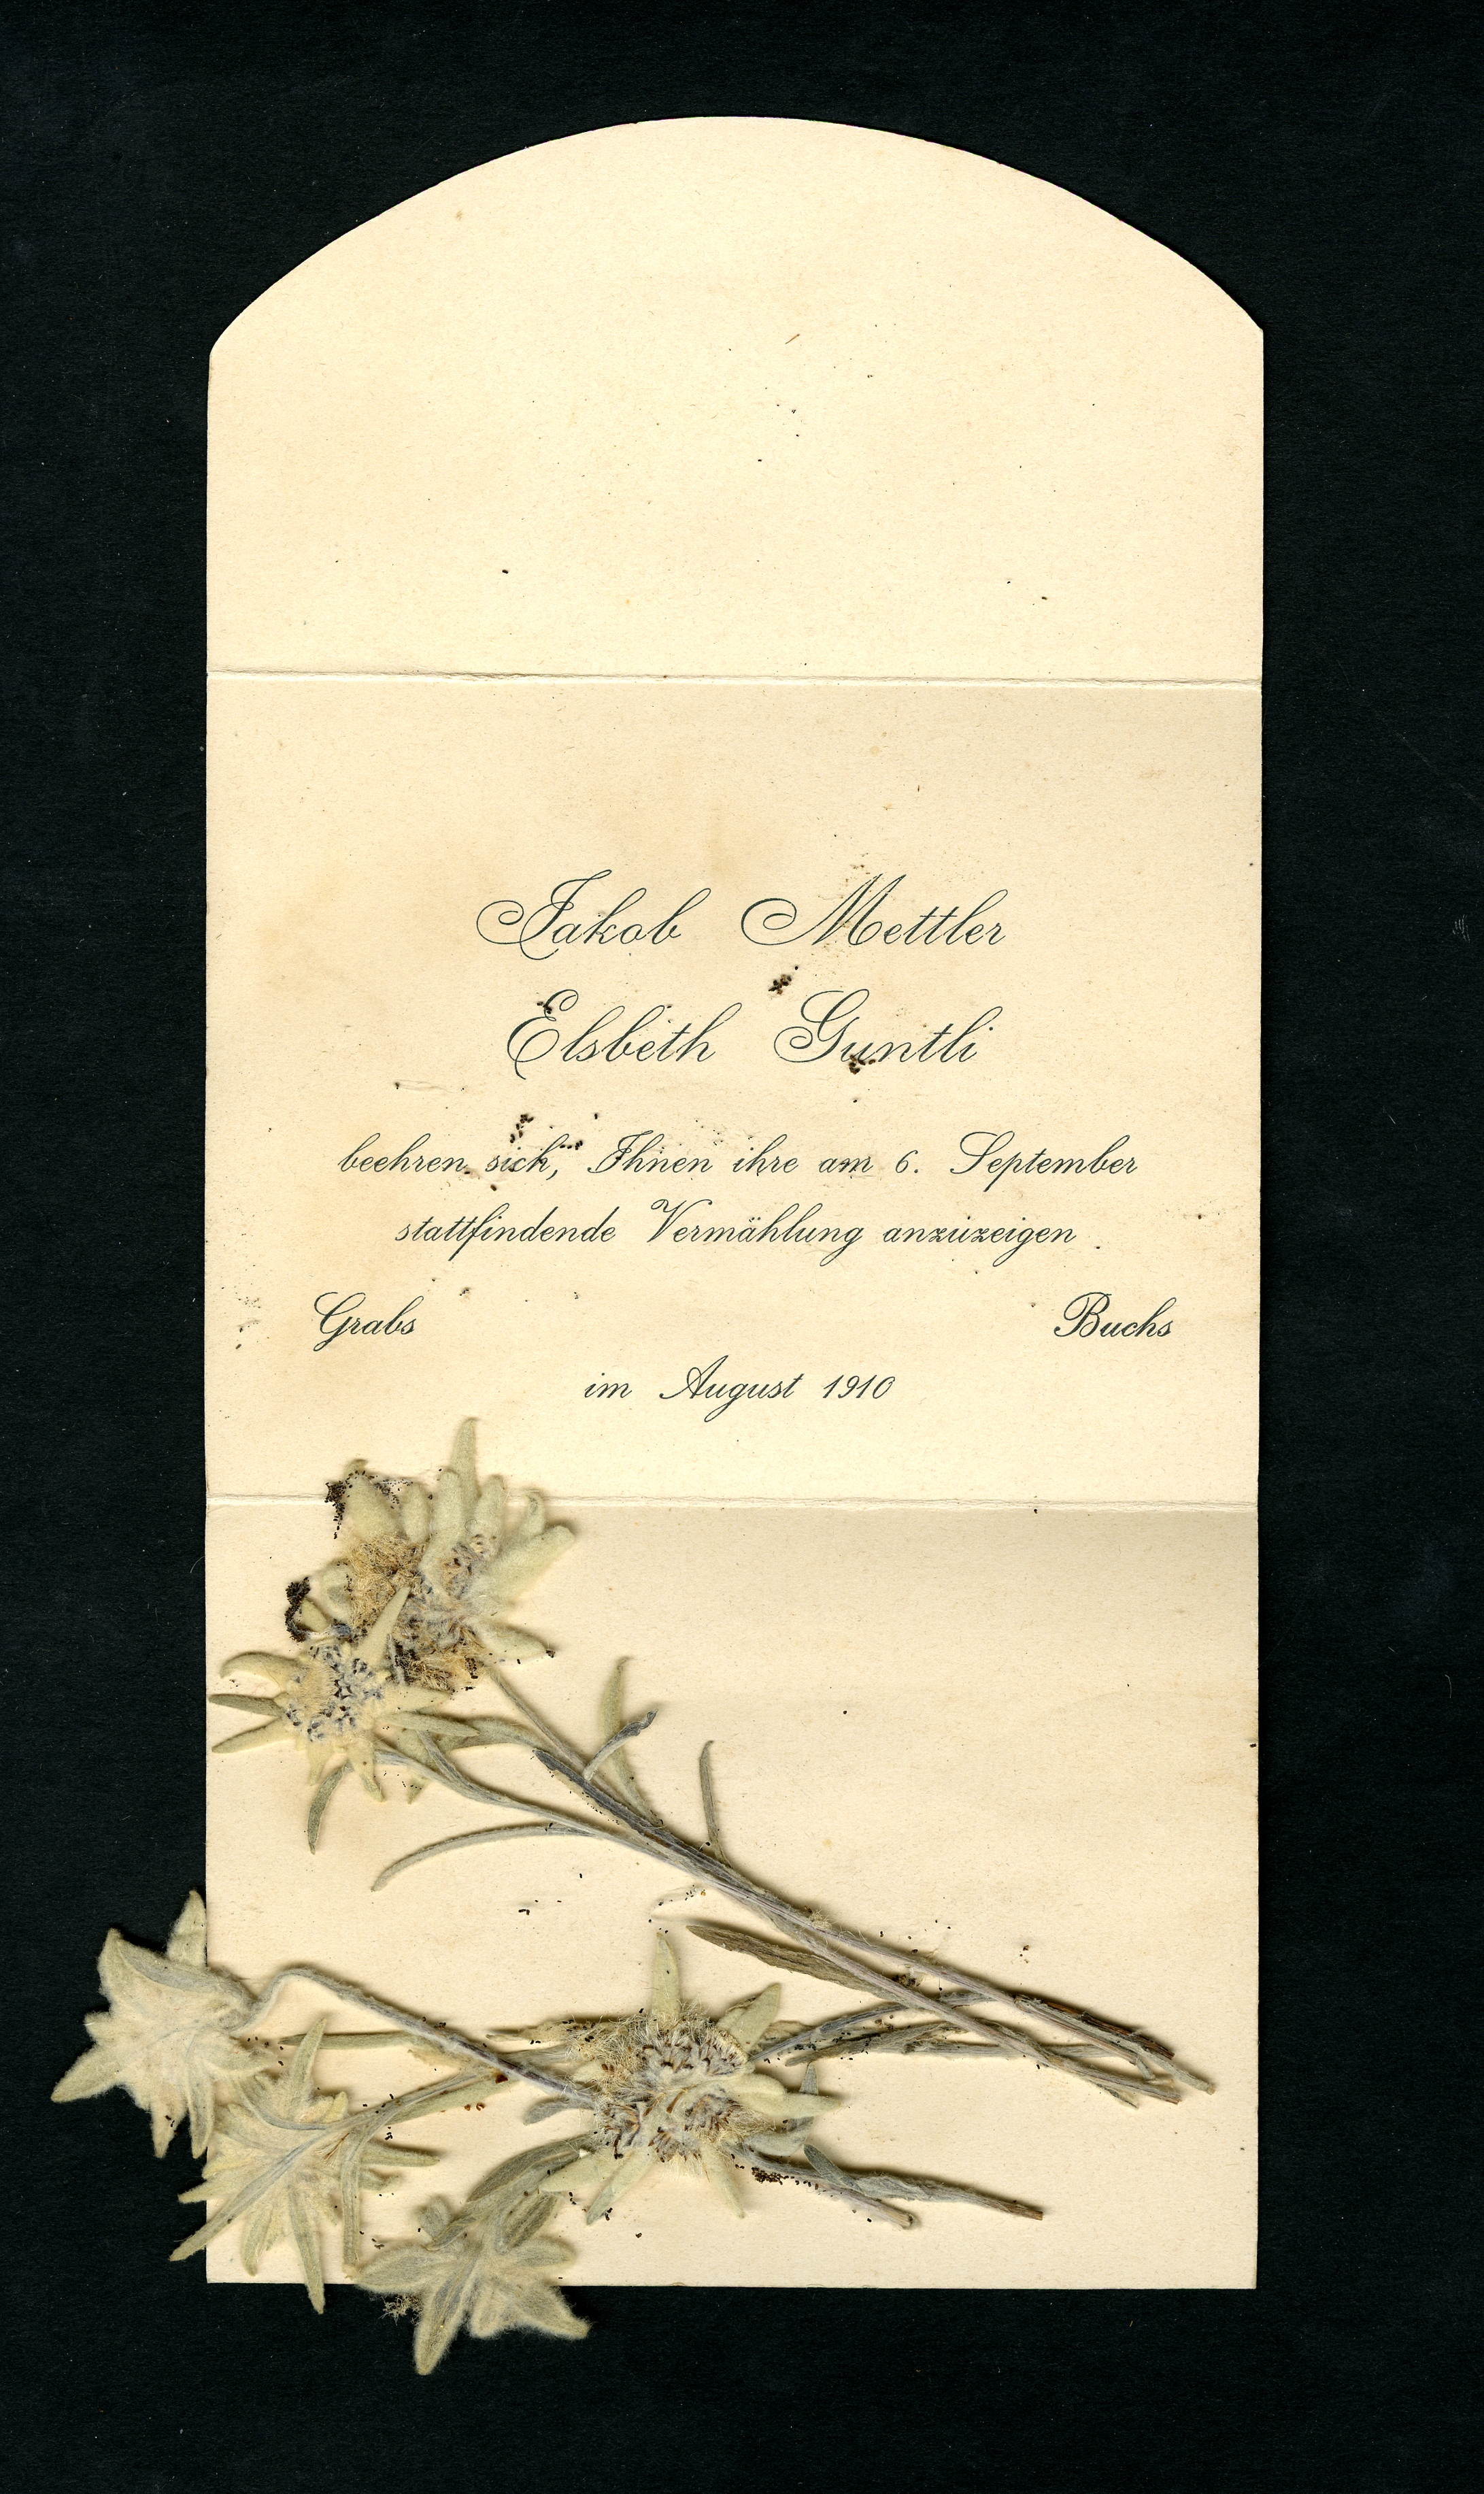 Jakob Mettler
Elsbeth Guntli
beehren sich, Ihnen ihre am 6. September
stattfindende Vermählung anzuzeigen.
Grabs Buchs
im August 1910